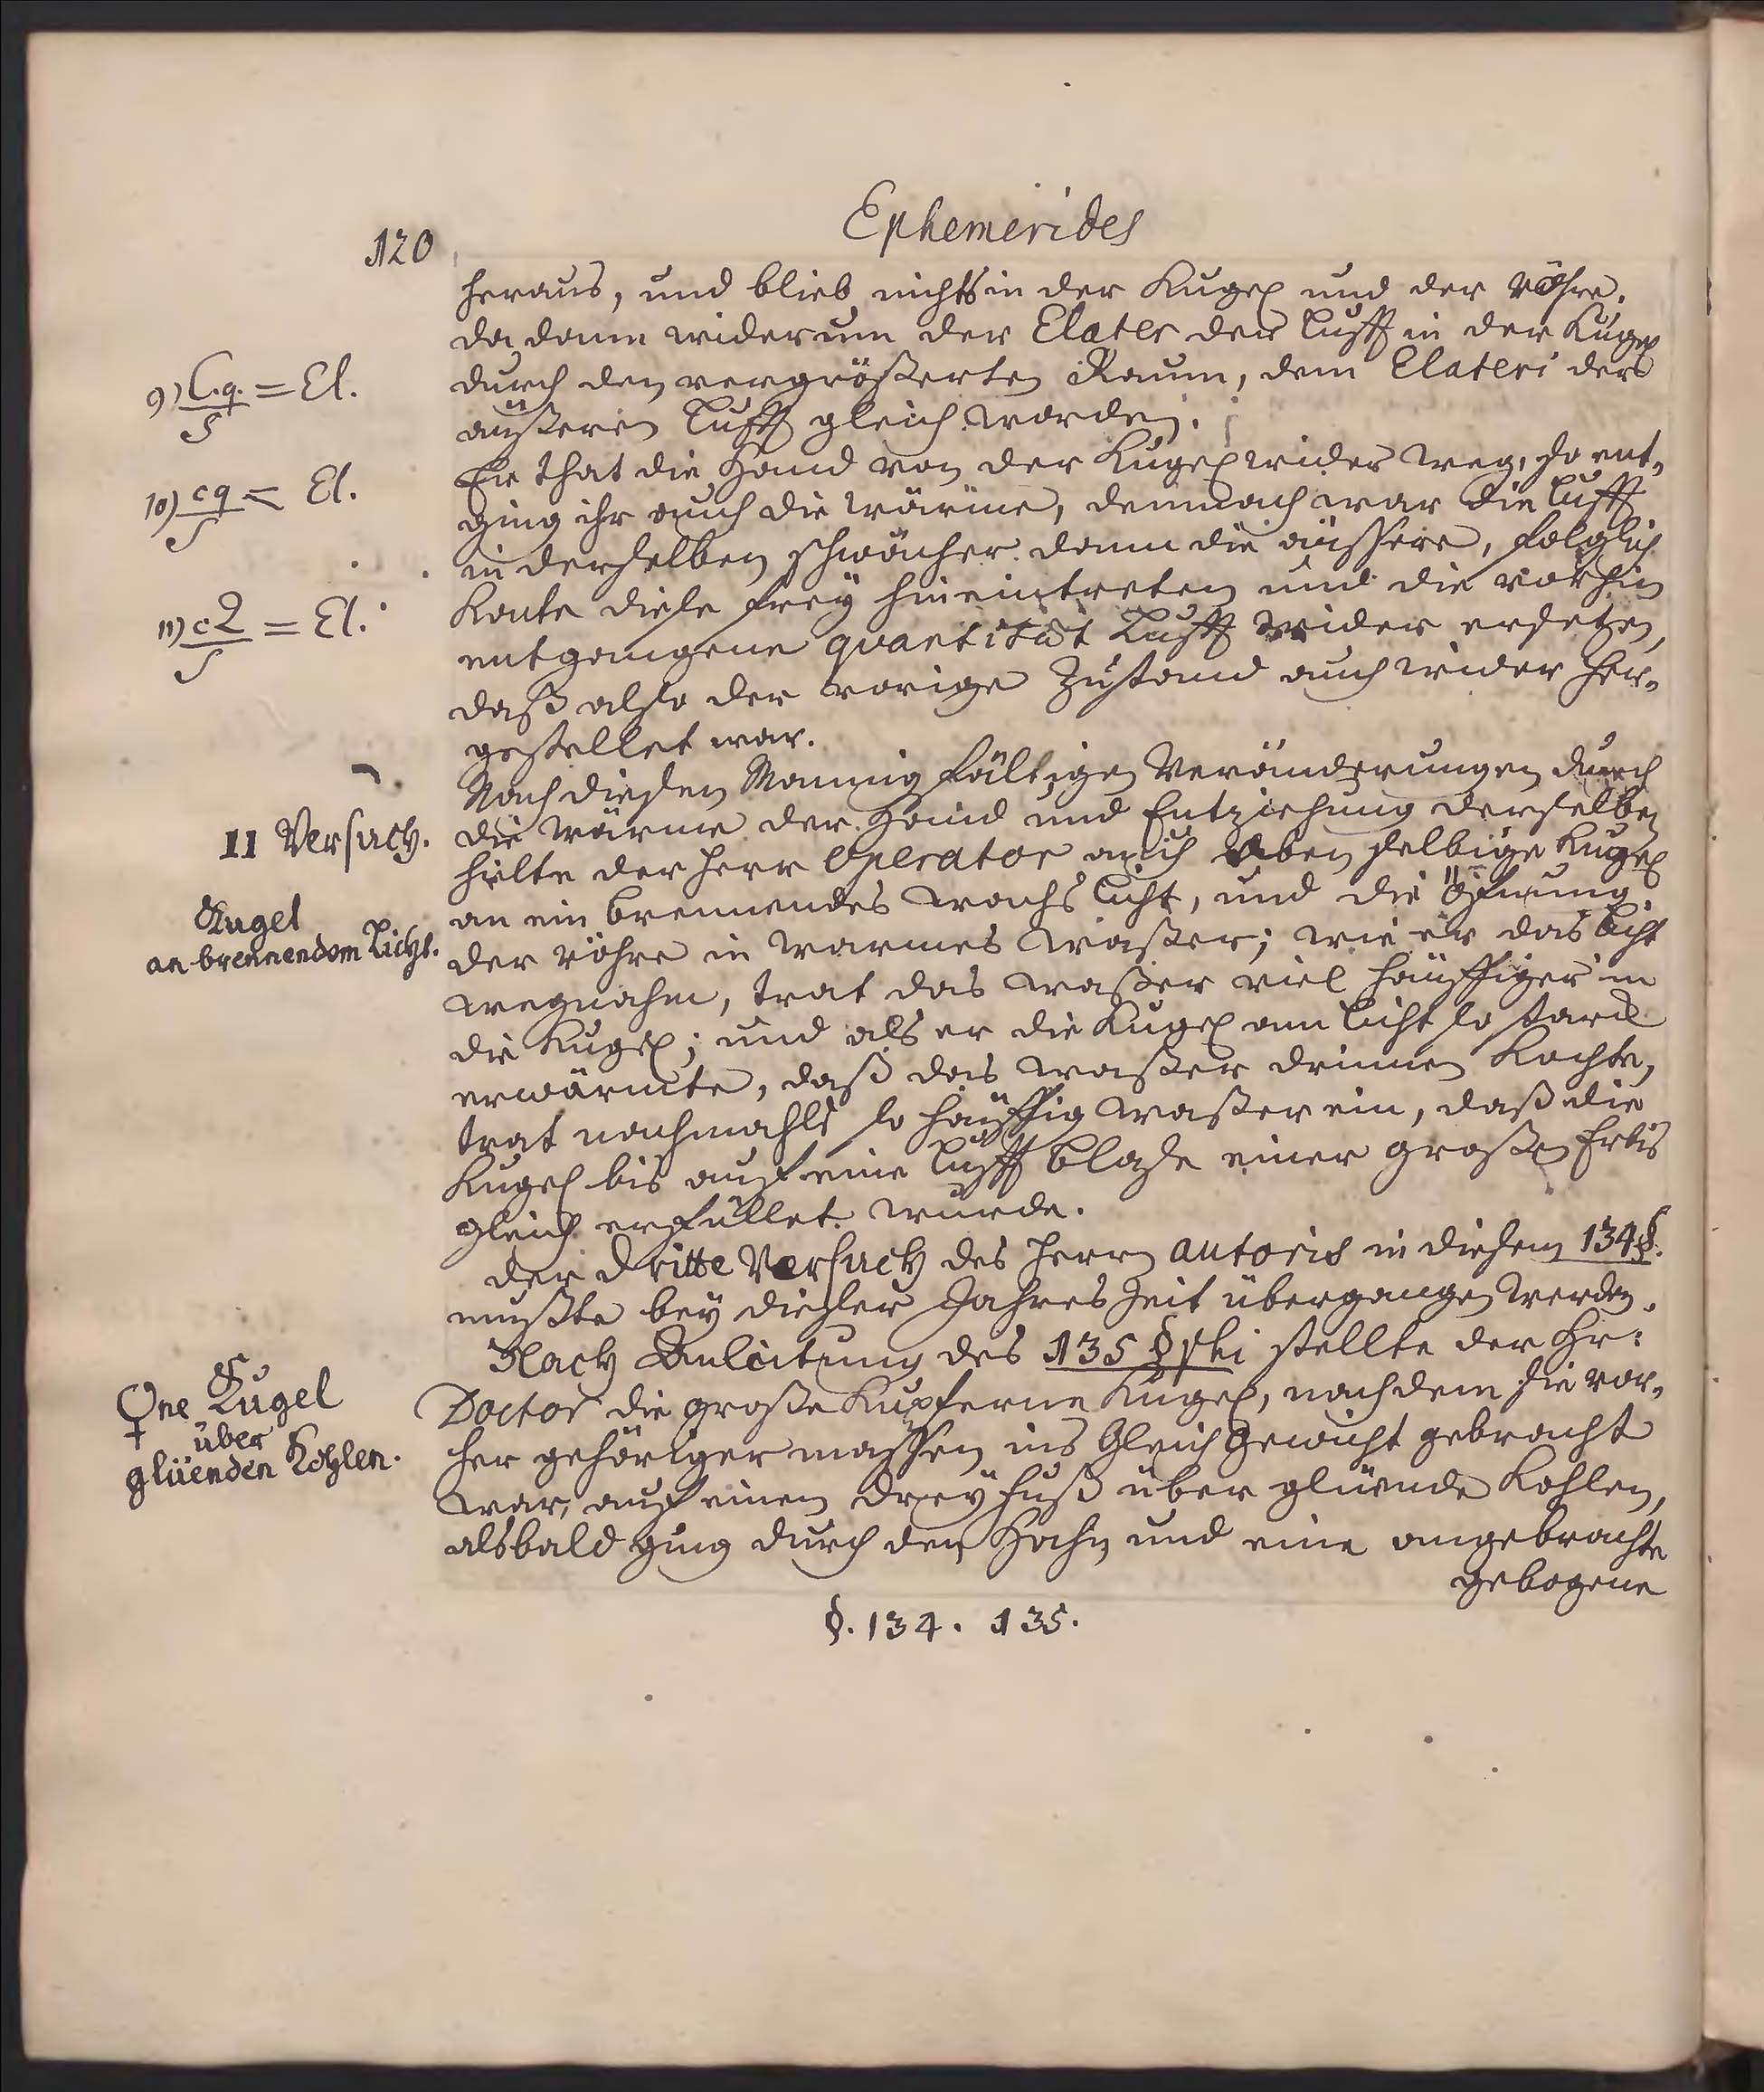 120
Ephemerides
heraus, und blieb nichts in der Kugel und der röhre.
da dann widerum der Elater der Lufft in der Kugel
durch den vergrößerten Raum, dem Elateri der
äußeren Lufft gleich worden.
Er that die Hand von der Kugel wider weg, so ent-
ging ihr auch die wärme, demnach war die Lufft
in derselben schwächer dann die äussere, folglich
konte diese frey hineintreten und die vorhin
entgangene quantität Lufft wider ersetzen,
daß also der vorige Zustand auch wider her-
gestellet war.
Nach diesen Mannigfältigen Veränderungen durch
die wärme der Hand und Entziehung derselben
hielte der Herr Operator auch eben selbige Kugel
an ein brennendes wachs Licht, und die öfnung
der röhre in warmes waßer; wie er das Licht
wegnahm, trat das waßer viel häuffiger in
die Kugel; und als er die Kugel am Licht so starck
erwärmte, daß das waßer drinnen kochte,
trat nachmahls so häuffig waßer ein, daß die
Kugel bis auf eine Lufft blase einer großen Erbis
gleich erfüllet wurde.
der dritte Versuch des Herrn autoris in diesem 134 §.
mußte bey dieser Jahres Zeit übergangen werden.
Nach Anleitung des 135 §phi stellte der Hr:
Doctor die große Kupferne Kugel, nachdem sie vor-
her gehöriger massen ins Gleich Gewicht gebracht
war, auf einen dreyfuß über glüende Kohlen,
alsbald ging durch den Hahn und eine angebrachte
gebogene
§. 134. 135.
9) C.q. = El.
S
10) cq = El.
S
11) c2 = El.
S
11 Versuch.
Kugel
an brennendem Licht.
♀ne Kugel
über
glüenden Kohlen.